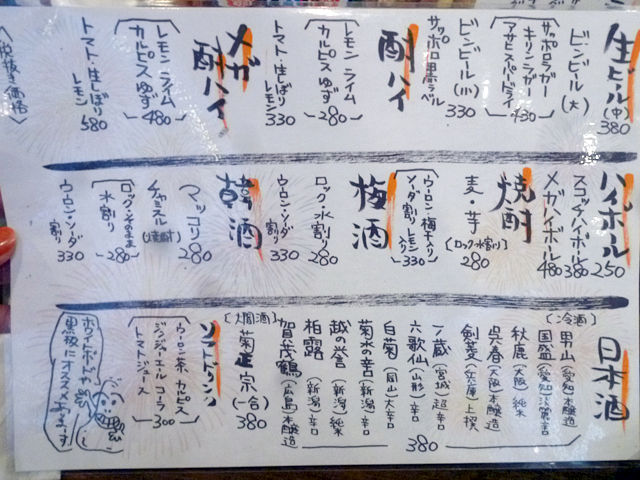 生ビール(中)
380
ビンビール(大)
サッポロラガー
キリンラガー
アサヒスーパードライ
430
ビンビール(小)
サッポロ黒ラベル
330
酎ハイ
レモン ライム
カルピス ゆず
280
トマト・生しぼり
レモン
330
メガ
酎ハイ
レモン ライム
カルピス ゆず
480
トマト・生しぼり
レモン
580
〈税抜き価格〉
ハイボール
250
スコッチハイボール
380
メガハイボール
480
焼酎
麦・芋
〔ロック・水割り〕
280
ウーロン・梅干入り
ソーダ割り レモン入り
330
梅酒
ロック・水割り
280
ウーロン・ソーダ
割り
330
韓酒
マッコリ
280
チョミスル
(焼酎)
ロック・そのまま
水割り
280
ウーロン・ソーダ
割り
330
日本酒
〔冷酒〕
男山(愛知)本醸造
国盛(愛知)淡麗辛口
秋鹿(大阪)純米
呉春(大阪)本醸造
剣菱(兵庫)上撰
一ノ蔵(宮城)超辛口
六歌仙(山形)辛口
白菊(岡山)大辛口
菊水の辛口(新潟)辛口
越の誉(新潟)純米
柏露(新潟)辛口
賀茂鶴(広島)本醸造
380
〔燗酒〕
菊正宗(一合)
380
ソフトドリンク
ウーロン茶 カルピス
ジンジャーエール コーラ
トマトジュース
300
ホワイトボードか
黒板にオススメあります